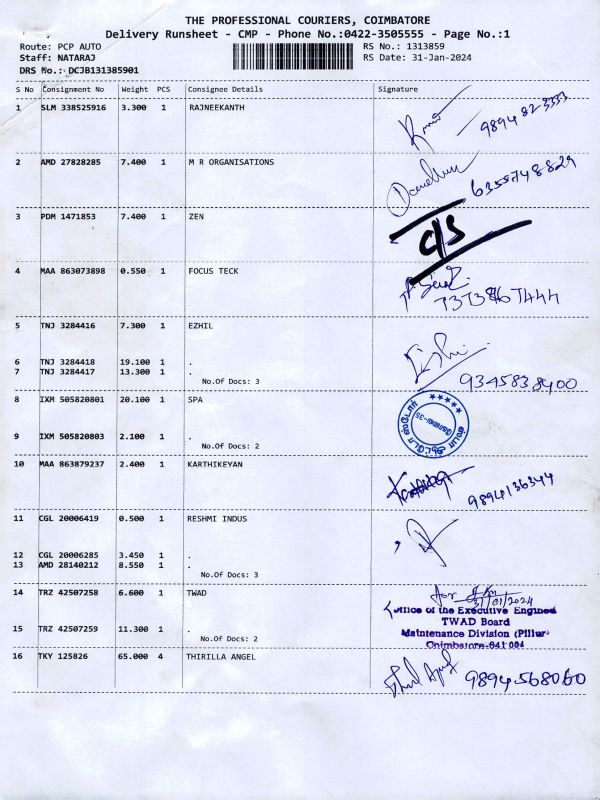 THE PROFESSIONAL COURIERS, COIMBATORE
Delivery Runsheet - CMP - Phone No.:0422-3505555 - Page No.:1
Route: PCP AUTO RS No.: 1313859
Staff: NATARAJ RS Date: 31-Jan-2024
DRS No.: DCJB131385901
S No Consignment No Weight PCS Consignee Details Signature
1 SLM 338525916 3.300 1 RAJNEEKANTH
9894 82 3333
2 AMD 27828285 7.400 1 M R ORGANISATIONS
6359748829
3 PDM 1471853 7.400 1 ZEN
C/S
4 MAA 863073898 0.550 1 FOCUS TECK
5 TNJ 3284416 7.300 1 EZHIL
6 TNJ 3284418 19.100 1 .
7 TNJ 3284417 13.300 1 .
No.Of Docs: 3
9345838400
8 IXM 505820801 20.100 1 SPA
9 IXM 505820803 2.100 1 .
No.Of Docs: 2
10 MAA 863879237 2.400 1 KARTHIKEYAN
9894136344
11 CGL 20006419 0.500 1 RESHMI INDUS
12 CGL 20006285 3.450 1 .
13 AMD 28140212 8.550 1 .
No.Of Docs: 3
14 TRZ 42507258 6.600 1 TWAD
for
31/01/2024
Office of the Executive Engineer
TWAD Board
15 TRZ 42507259 11.300 1 . Maintenance Division (Pillur)
No.Of Docs: 2
Coimbatore-641 004
16 TKY 125826 65.000 4 THIRILLA ANGEL
9894568060